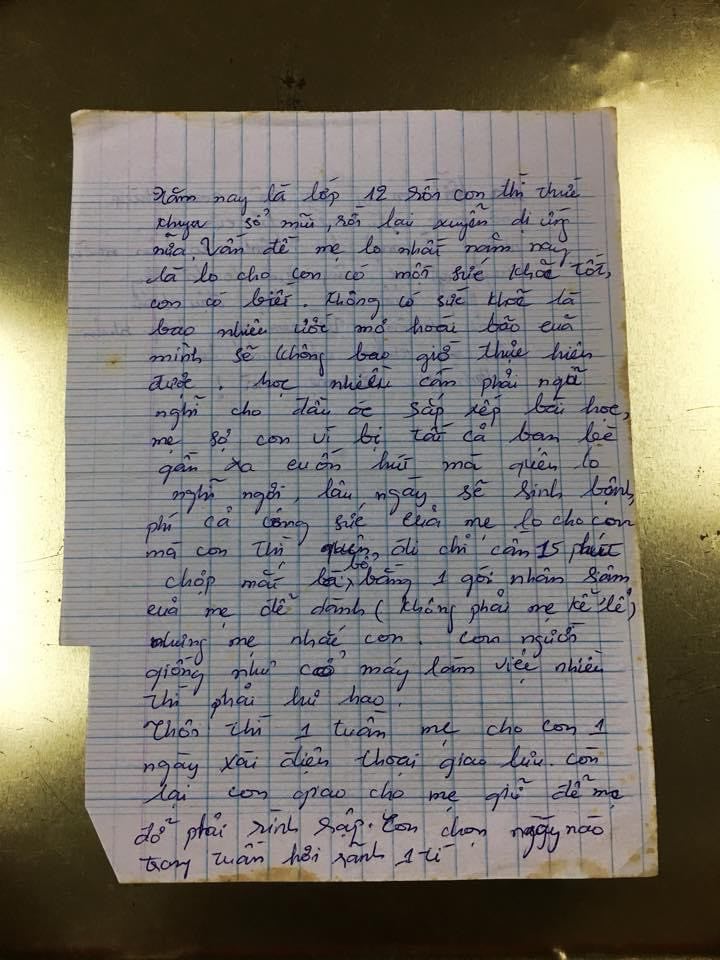 Năm nay là lớp 12 rồi con thì thức
khuya sổ mũi, rồi lại xuyễn dị ứng
nữa. Vấn đề mẹ lo nhất năm nay
là lo cho con có một sức khoẻ tốt,
con có biết. Không có sức khoẻ là
bao nhiêu ước mơ hoài bão cuả
mình sẽ không bao giờ thực hiện
được. học nhiều cần phải ngơi
nghỉ cho đầu óc sắp xếp bài học,
mẹ sợ con vì bị tất cả bạn bè
gần xa cuốn hút mà quên lo
nghỉ ngơi, lâu ngày sẽ sinh bệnh,
phí cả công sức cuả mẹ lo cho con
mà con thì quên, đi chỉ cần 15 phút
chớp mắt bằng 1 gói nhân sâm
cuả mẹ để dành (không phải mẹ kể lể)
nhưng mẹ nhắc con. con người
giống như cổ máy làm việc nhiều
thì phải hư hao.
Thôi thì 1 tuần mẹ cho con 1
ngày xài điện thoại giao lưu. còn
lại con giao cho mẹ giữ để mẹ
đở phải rình rập. Con chọn ngày nào
trong tuần hơi rãnh 1 tí